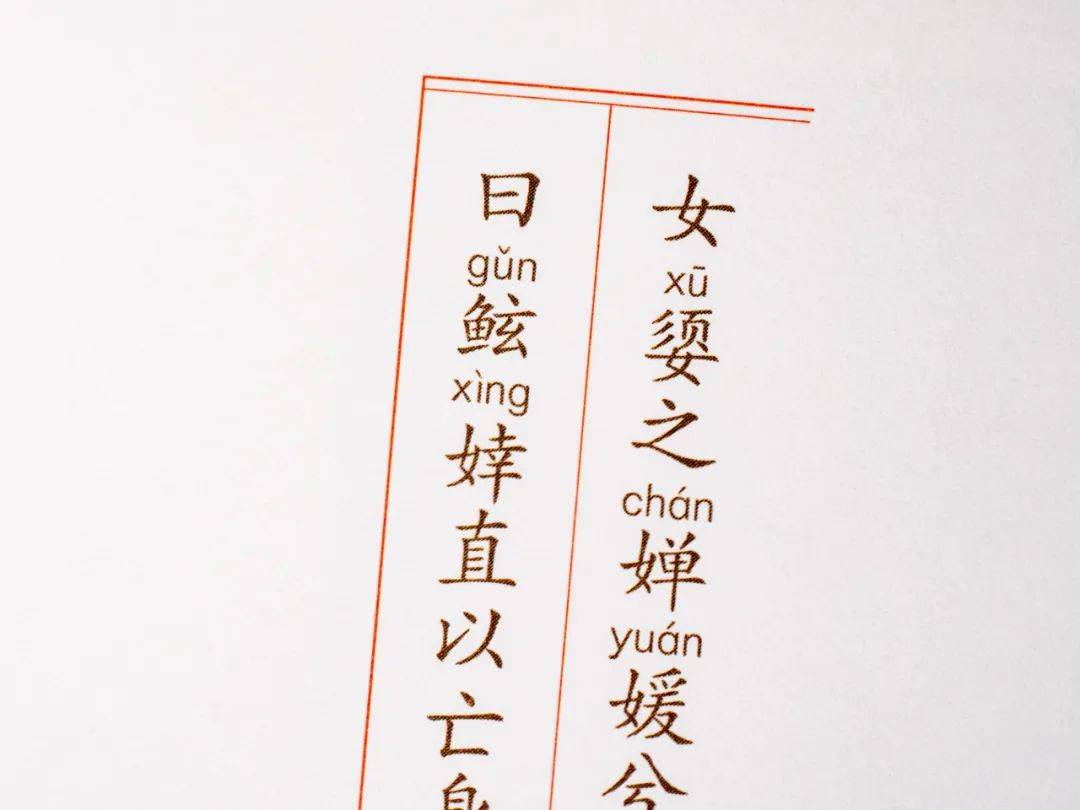 女xū媭之chán婵yuán媛兮
曰gǔn鮌xìng婞直以亡身